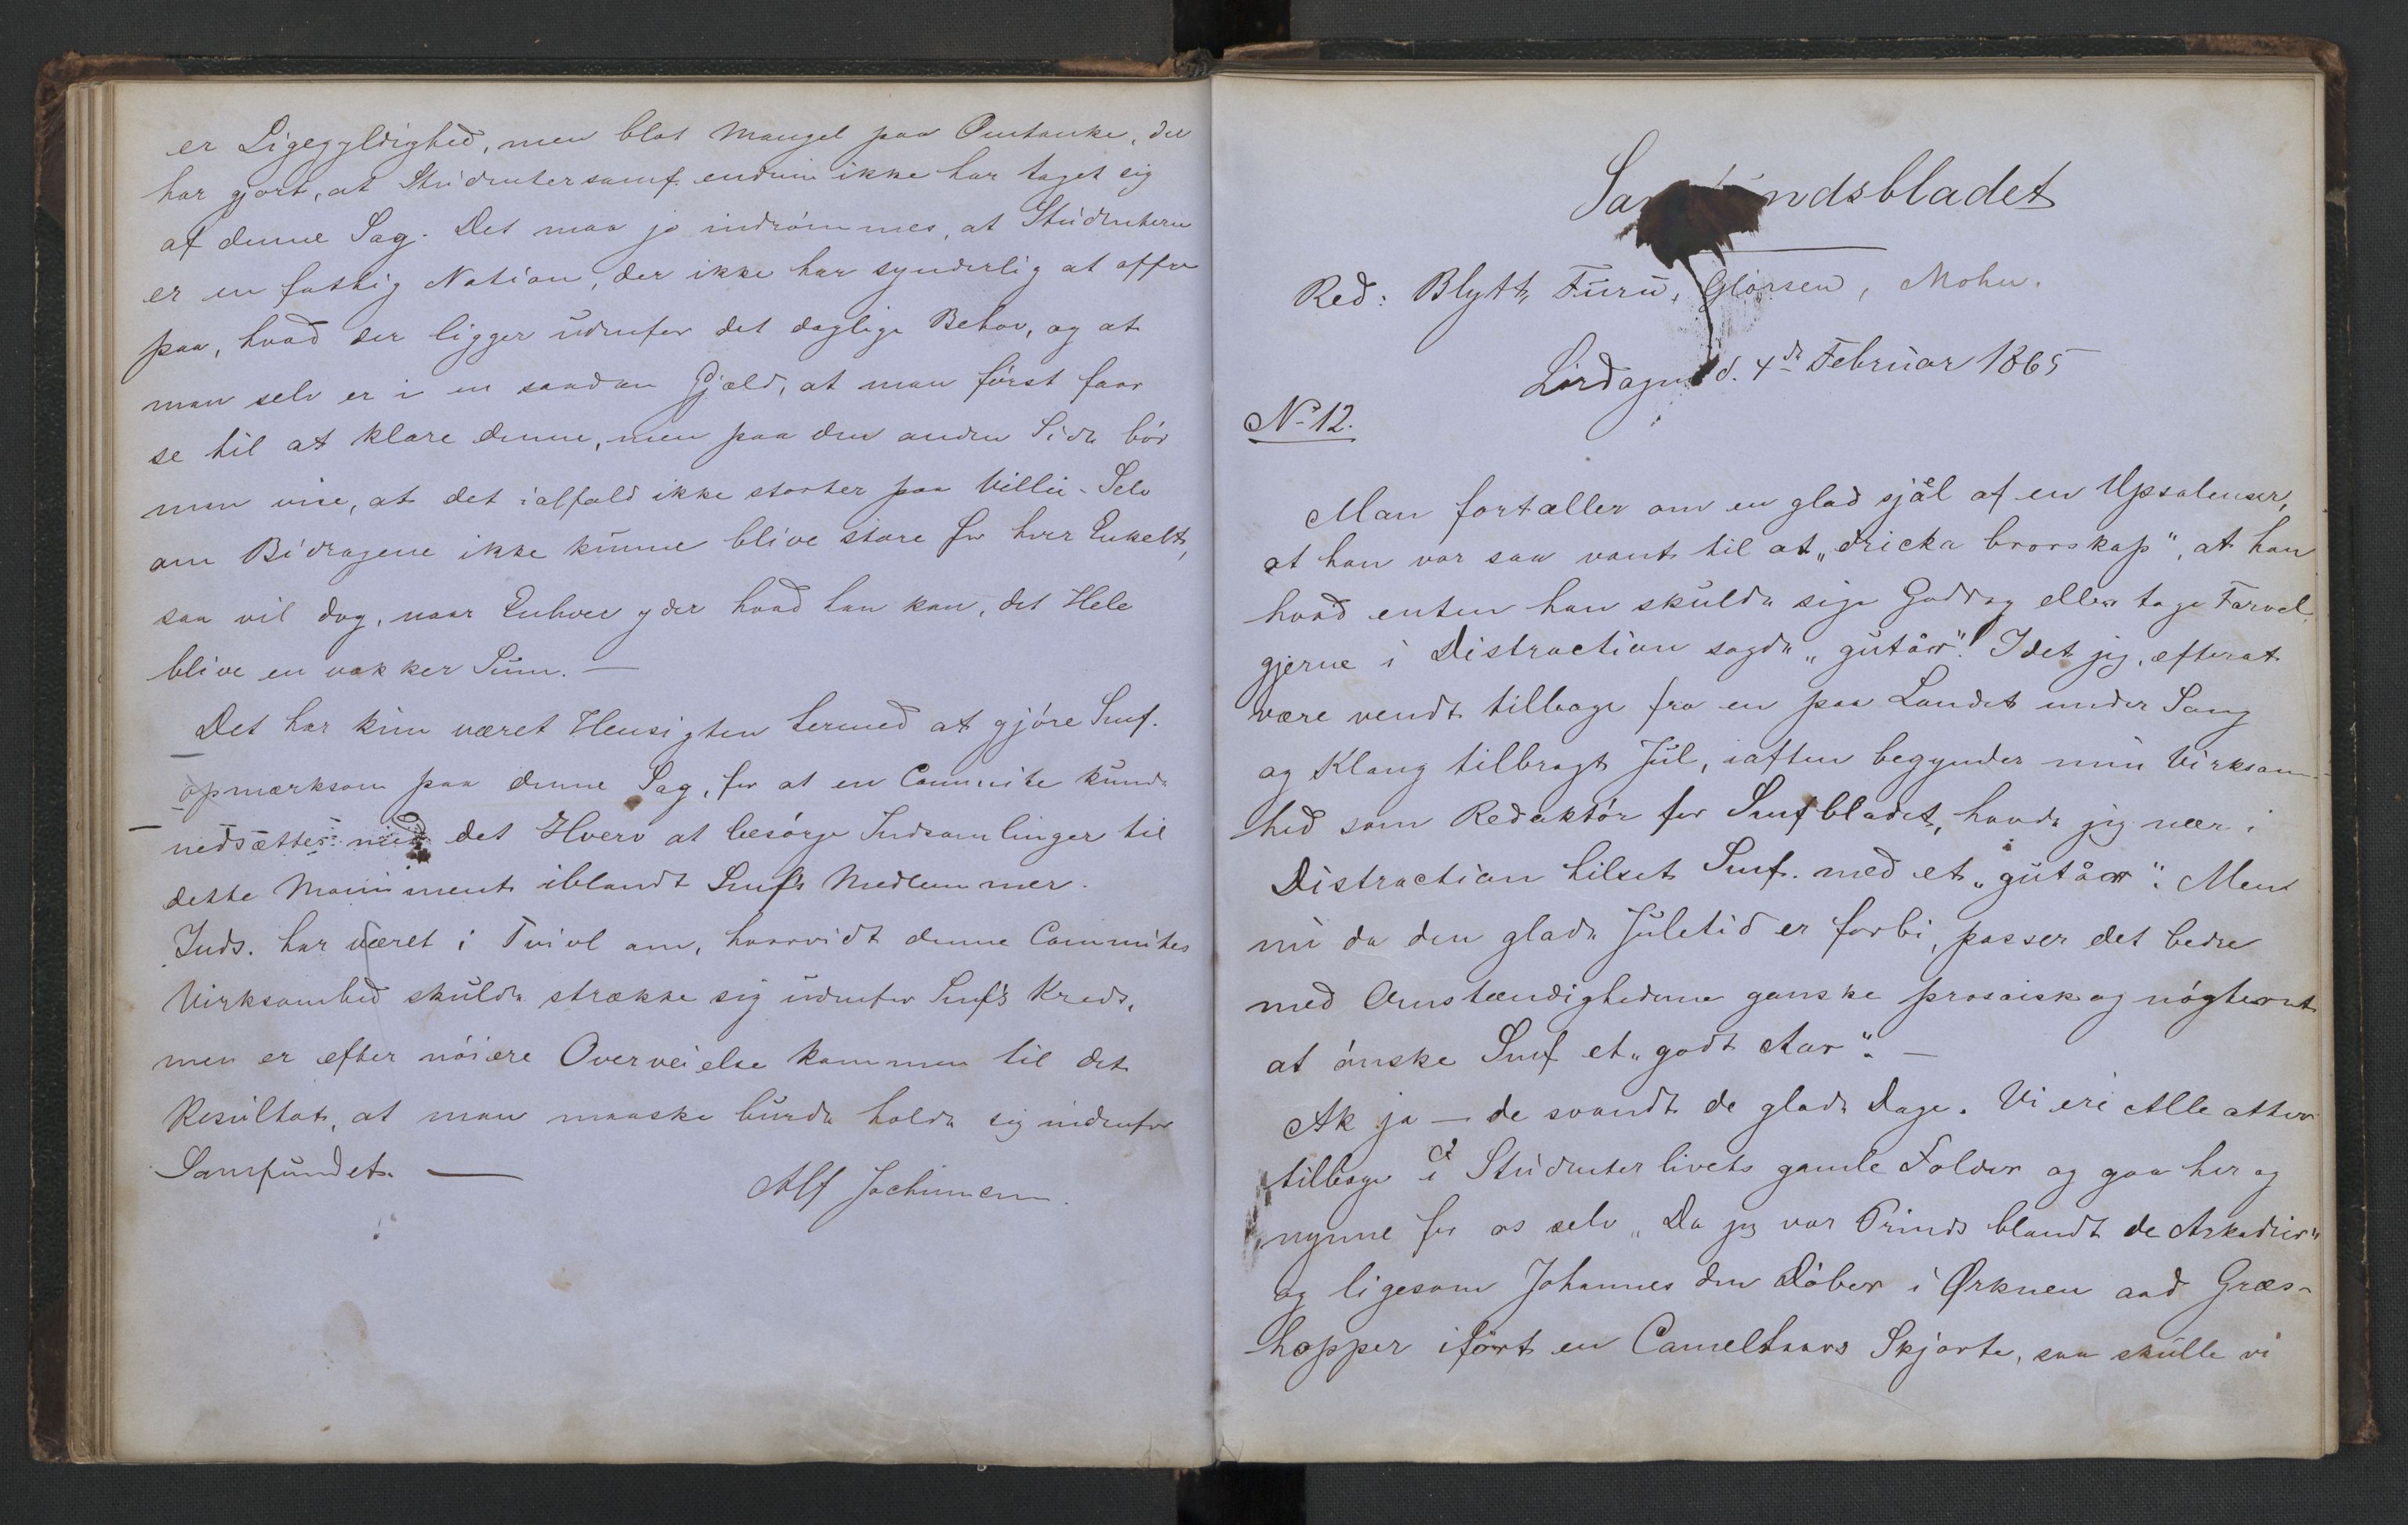 er Ligegyldighed, men blot Mangel paa Omtanke, der
har gjort, at Studentersamf. endnu ikke har taget sig
af denne Sag. Det maa jo indrømmes, at Studenterne
er en fattig Nation, der ikke har synderlig at offre
paa, hvad der ligger udenfor det daglige Behov, og at
man selv er i en saadan Gjæld, at man først faar
se til at klare denne, men paa den anden Side bør
man vise, at det ialfald ikke skorter paa Villie. Selv
om Bidragene ikke kunne blive store for hver Enkelt,
saa vil dog, naar Enhver yder hvad han kan, det Hele
blive en vakker Sum. —
Det har kun været Hensigten hermed at gjøre Smf.
opmærksom paa denne Sag, for at en Committe kunde
nedsættes med det Hverv at besørge Indsamlinger til
dette Monument iblandt Smf's Medlemmer.
Inds. har været i Tvivl om, hvorvidt denne Committes
Virksomhed skulde strække sig udenfor Smf's Kreds,
men er efter nøiere Overveielse kommen til det
Resultat, at man maaske burde holde sig indenfor
Samfundet. —
Alf Jochimsen.
Samfundsbladet
Red: Blytt, Furu, Glørsen, Mohn.
Lørdagen d. 4de Februar 1865
No 12.
Man fortæller om en glad själ af en Upsalenser,
at han var saa vant til at „dricka brorskap", at han
hvad enten han skulde sige Goddag eller tage Farvel,
gjerne i Distraction sagde „gutår"! Idet jeg, efterat
være vendt tilbage fra en paa Landet under Sang
og Klang tilbragt Jul, iaften begynder min Virksom-
hed som Redaktør for Smfbladet, havde jeg nær i
Distraction hilset Smf. med et „gutår". Men
nu da den glade Juletid er forbi, passer det bedre
med Omstændighederne ganske prosaisk og nøgternt
at ønske Smf et „godt Aar". —
Ak ja — de svandt de glade Dage. Vi ere Alle atter
tilbage i Studenterlivets gamle Folder og gaa her og
nynne for os selv „Da jeg var Prinds blandt de Arkadier"
og ligesom Johannes den Døber i Ørknen aad Græs-
hopper iført en Camelhaars Skjorte, saa skulle vi